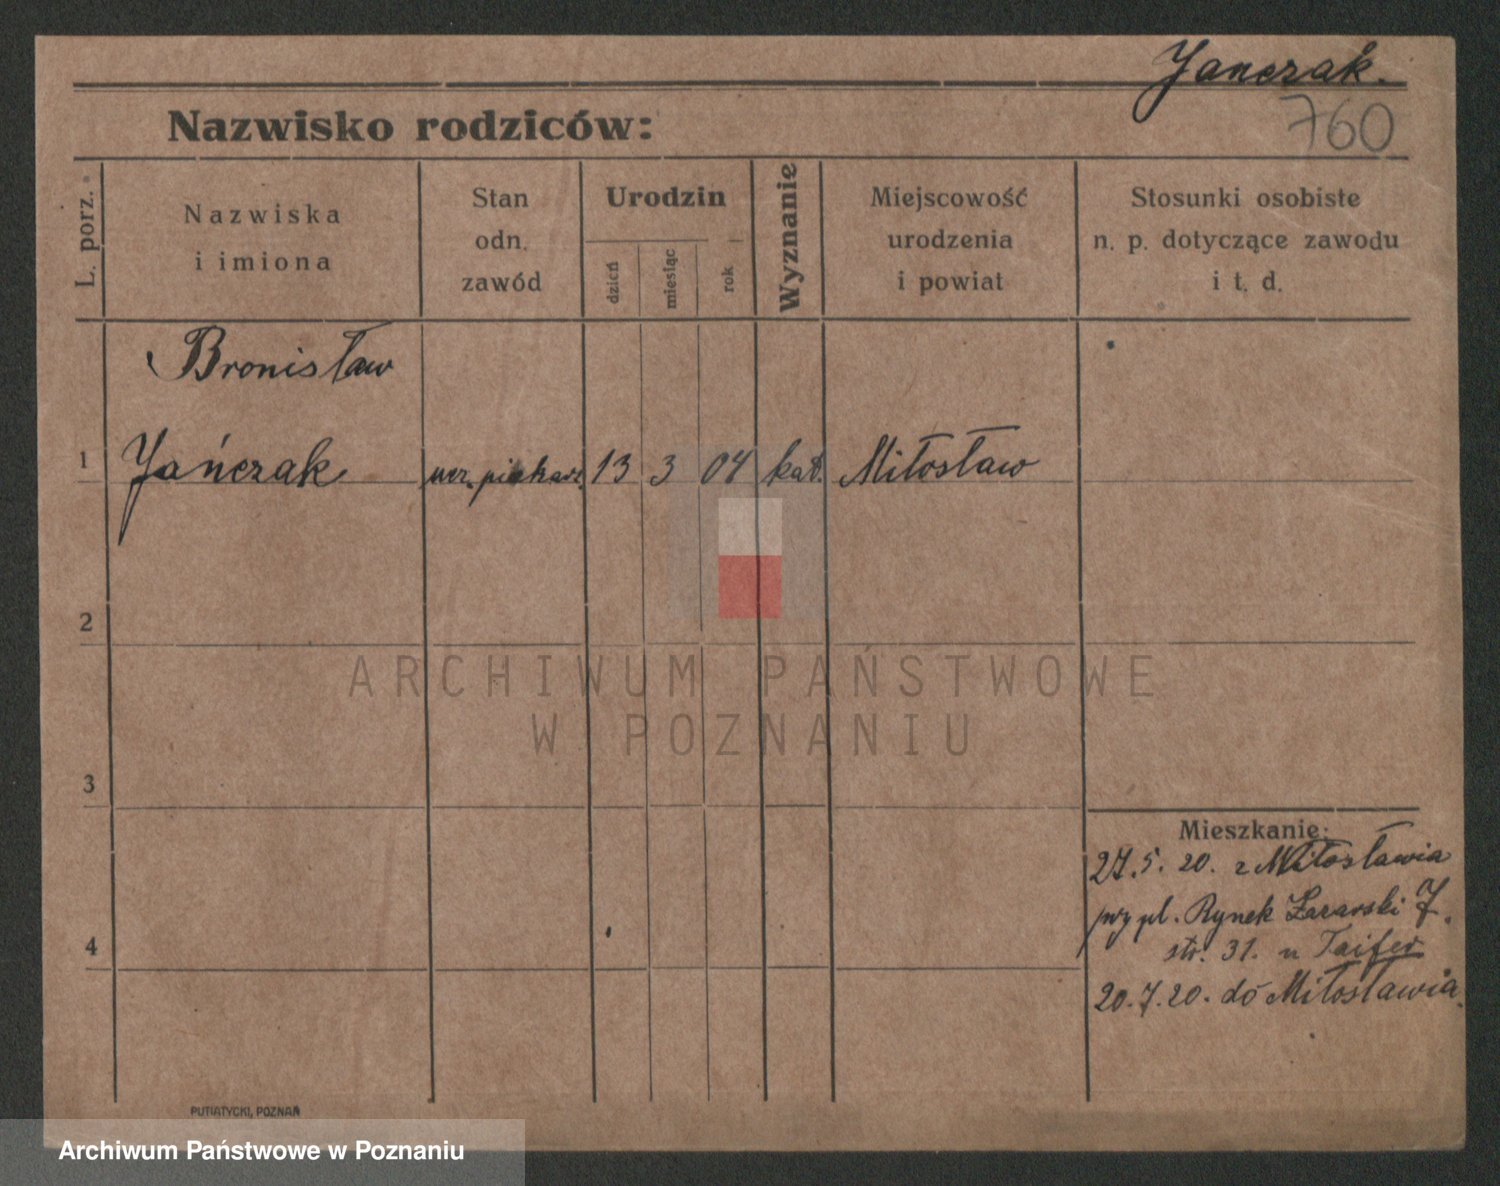 Janczak.
760
Nazwisko rodziców:
L. porz.
Nazwiska
i imiona
Stan
odn.
zawód
Urodzin
dzień
miesiąc
rok
Wyznanie
Miejscowość
urodzenia
i powiat
Stosunki osobiste
n. p. dotyczące zawodu
i t. d.
Bronisław
1 Jańczak ucz. piekar. 13 3 04 kat. Miłosław
2
ARCHIWUM PAŃSTWOWE
W POZNANIU
3
Mieszkanie:
27.5. 20. z Miłosławia
pl. Rynek Łazarski
4
str. 31. u Taifer
20.7.20. do Miłosławia.
PUTIATYCKI, POZNAŃ
Archiwum Państwowe w Poznaniu